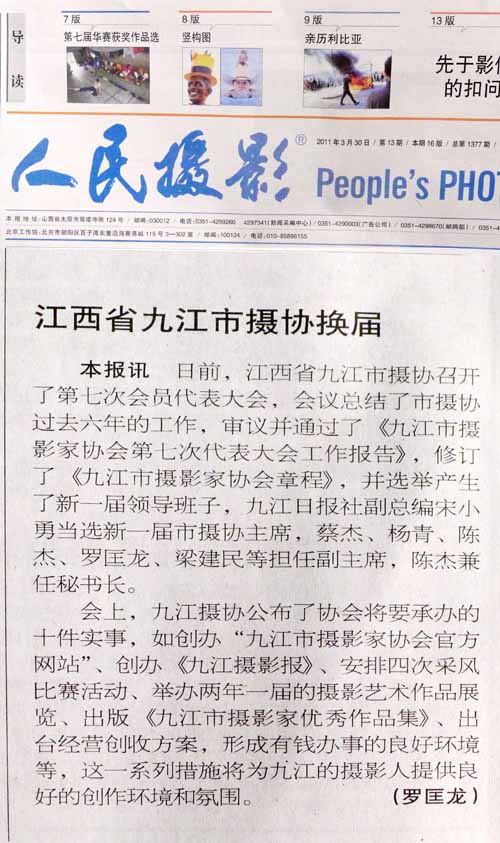 导读
7 版
第七届华赛获奖作品选
8 版
竖构图
9 版
亲历利比亚
13 版
先于影像
的扣问
人民摄影®
2011年3月30日 / 第13期 / 本期16版 / 总第1377期 /
People's PHO
本报地址:山西省太原市双塔寺街124号 / 邮编:030012 / 电话:0351-4299260 4297941(新闻采编中心) / 0351-4290003(广告公司) / 0351-4298670(邮购部) /
北京工作站:北京市朝阳区百子湾东里沿海赛洛城115号3—302室 / 邮编:100124 / 电话:010-85896155
江西省九江市摄协换届
本报讯 日前，江西省九江市摄协召开
了第七次会员代表大会，会议总结了市摄协
过去六年的工作，审议并通过了《九江市摄
影家协会第七次代表大会工作报告》，修订
了《九江市摄影家协会章程》，并选举产生
了新一届领导班子，九江日报社副总编宋小
勇当选新一届市摄协主席，蔡杰、杨青、陈
杰、罗匡龙、梁建民等担任副主席，陈杰兼
任秘书长。
会上，九江摄协公布了协会将要承办的
十件实事，如创办“九江市摄影家协会官方
网站”、创办《九江摄影报》、安排四次采风
比赛活动、举办两年一届的摄影艺术作品展
览、出版《九江市摄影家优秀作品集》、出
台经营创收方案，形成有钱办事的良好环境
等，这一系列措施将为九江的摄影人提供良
好的创作环境和氛围。 （罗匡龙）